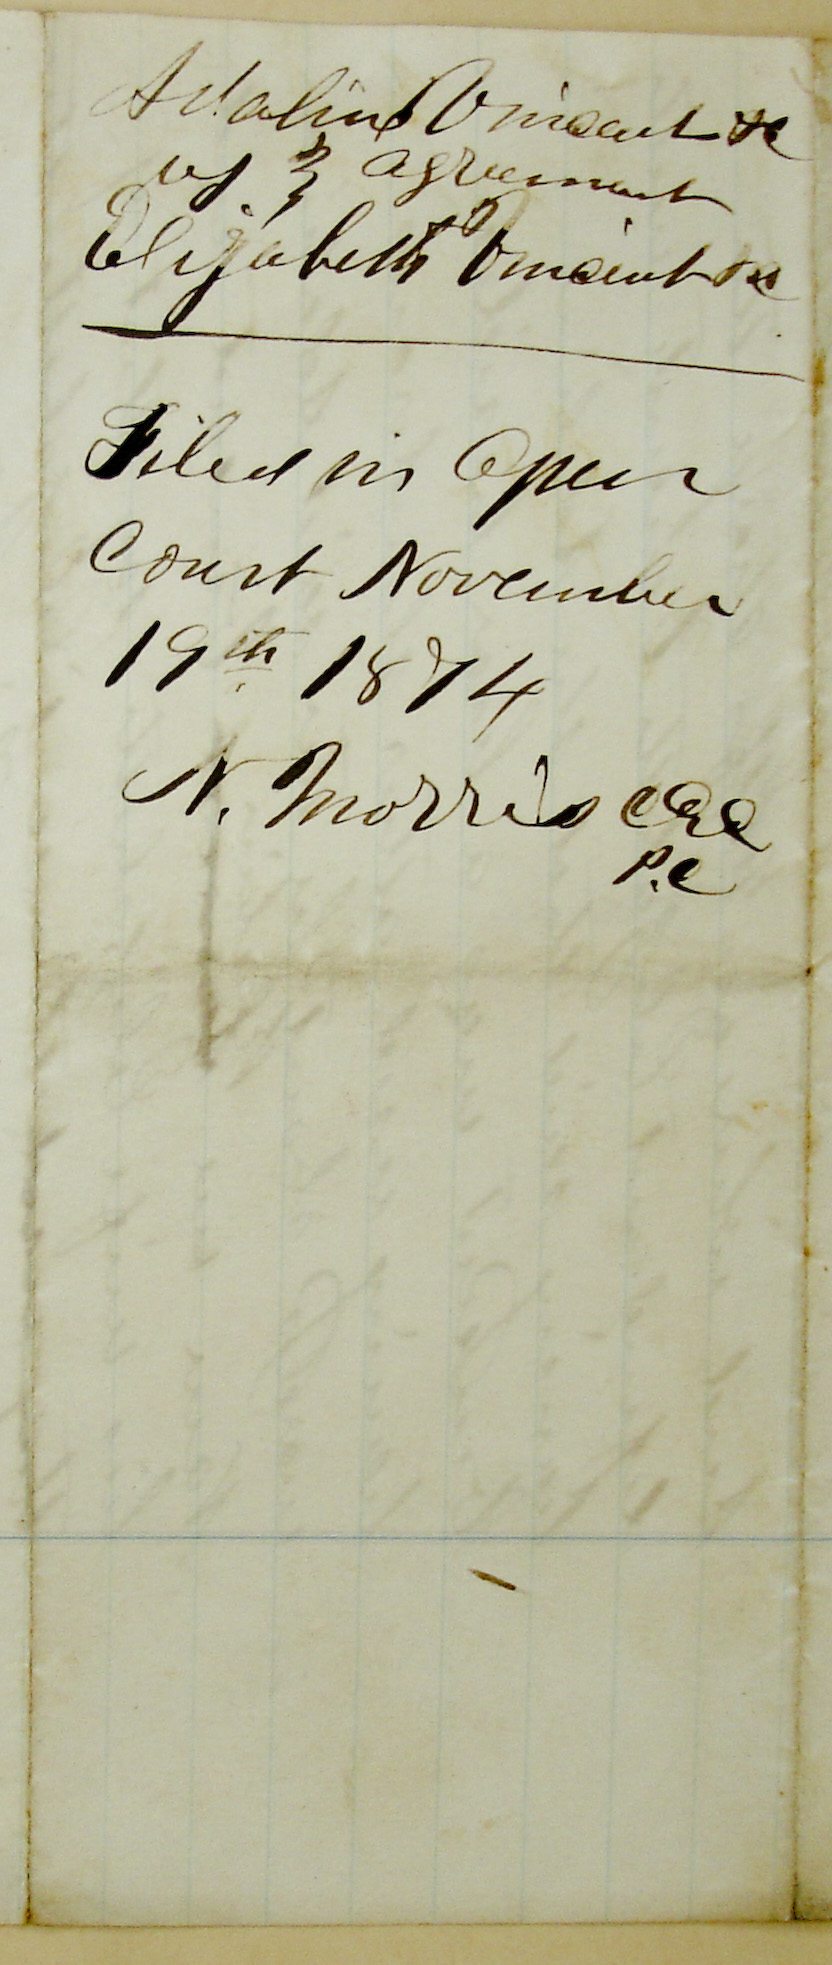 Adaline Vincent &c
vs } agreement
Elizabeth Vincent &c
Filed in Open
Court November
19th 1874
N. Morris
P.C